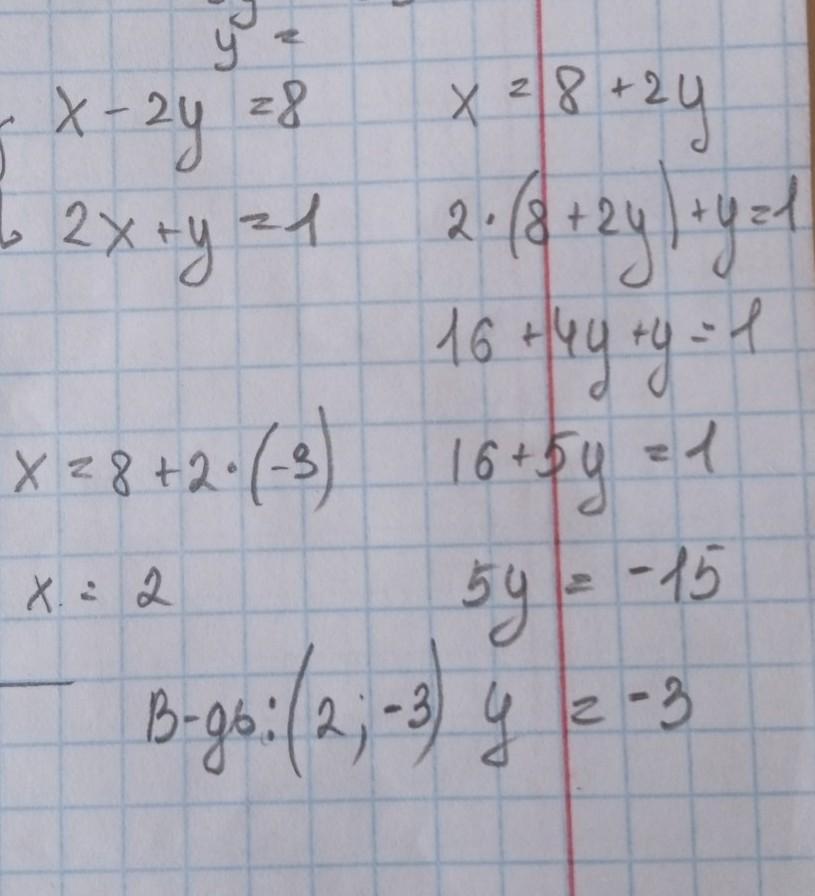 y =
x - 2y = 8
2x + y = 1
x = 8 + 2y
2 · (8 + 2y) + y = 1
16 + 4y + y = 1
16 + 5y = 1
5y = -15
y = -3
x = 8 + 2 · (-3)
x = 2
В-дь: (2; -3)